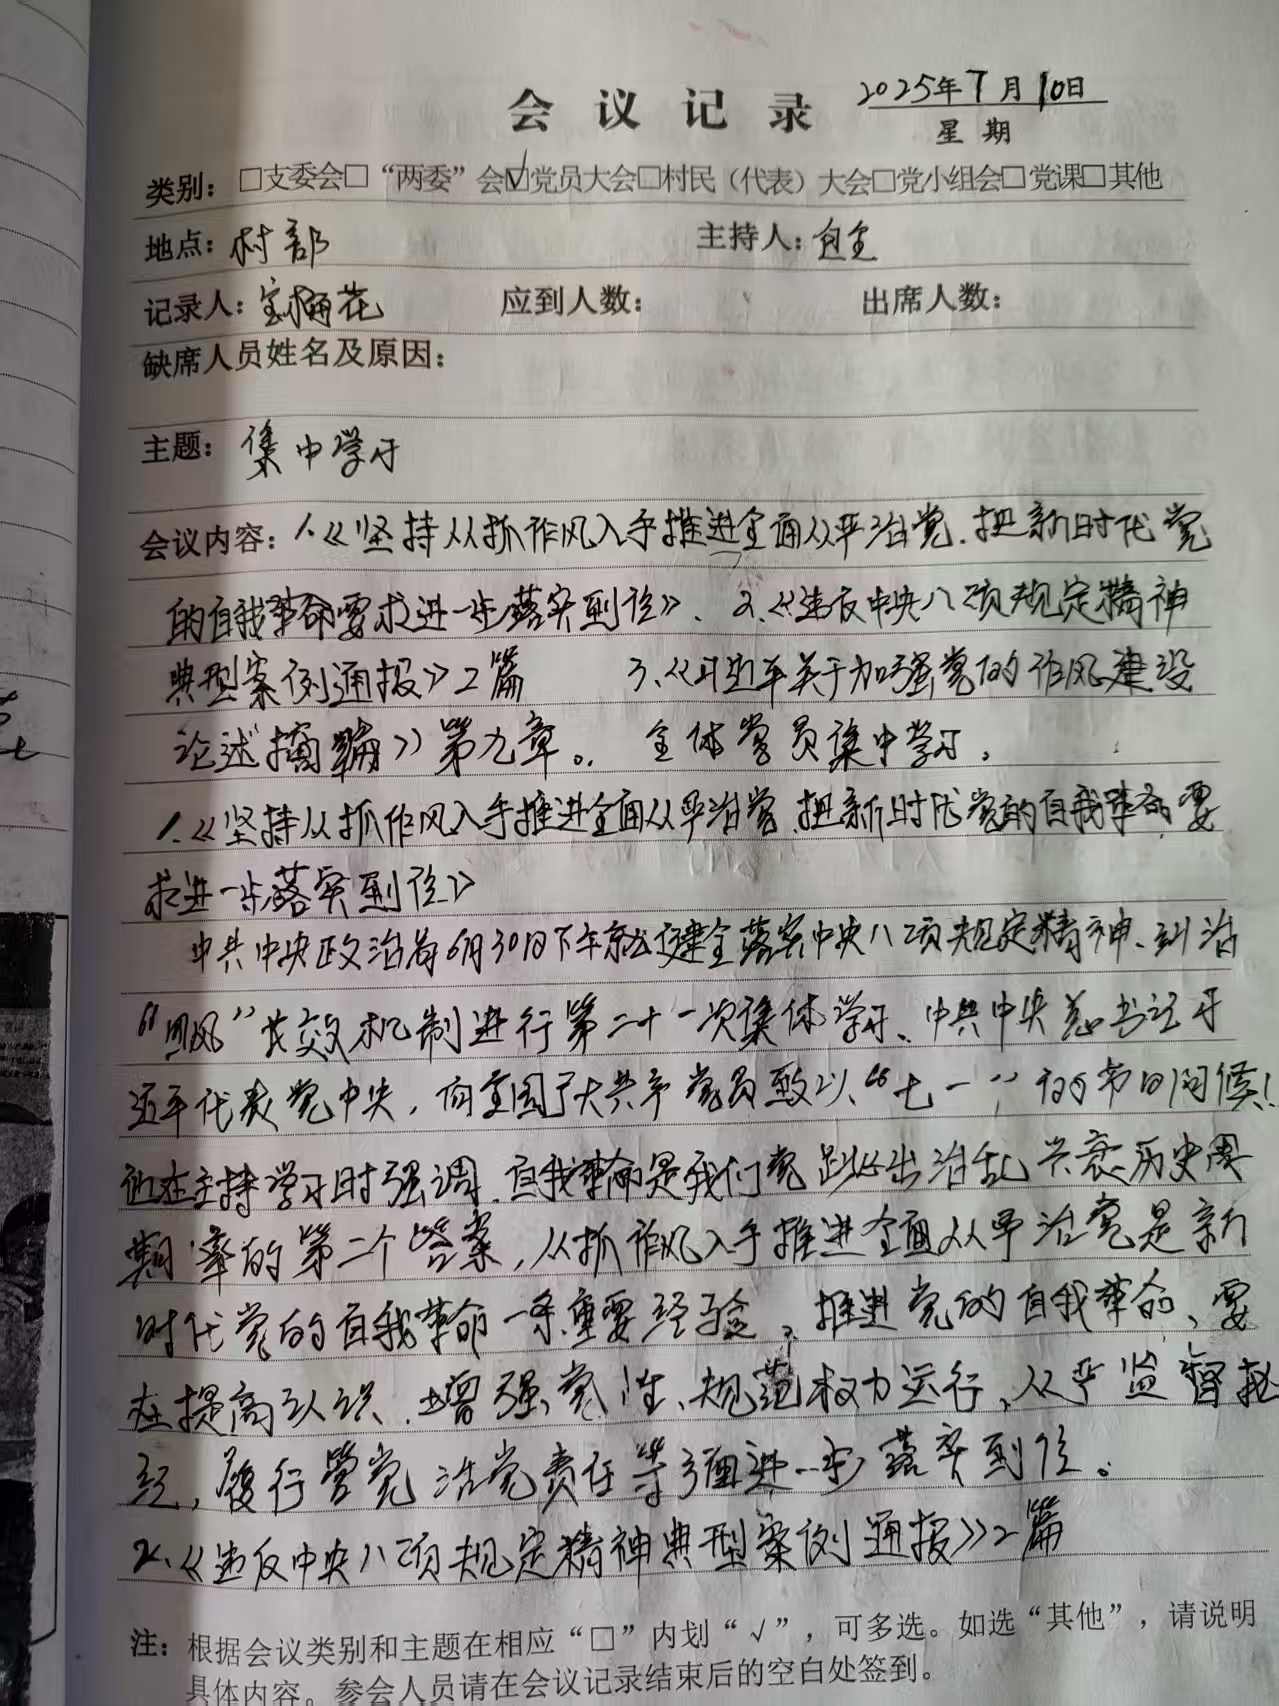 会议记录 2025年7月10日
星期
类别：□支委会□“两委”会☑党员大会□村民（代表）大会□党小组会□党课□其他
地点：村部 主持人：包
记录人：宝梅花 应到人数： 出席人数：
缺席人员姓名及原因：
主题：集中学习
会议内容：1.《坚持从抓作风入手推进全面从严治党、把新时代党
的自我革命要求进一步落实到位》、2.《违反中央八项规定精神
典型案例通报》2篇 3.《习近平关于加强党的作风建设
论述摘编》第九章。 全体党员集中学习。
1.《坚持从抓作风入手推进全面从严治党、把新时代党的自我革命要
求进一步落实到位》
中共中央政治局6月30日下午就健全落实中央八项规定精神、纠治
“四风” 长效机制进行第二十一次集体学习、中共中央总书记习
近平代表党中央，向全国广大共产党员致以“七一”的节日问候！
他在主持学习时强调、自我革命是我们党跳出治乱兴衰历史周
期率的第二个答案，从抓作风入手推进全面从严治党是新
时代党的自我革命一条重要经验、推进党的自我革命、要
在提高认识、增强党性、规范权力运行、从严监督执
纪，履行管党治党责任等方面进一步落实到位。
2.《违反中央八项规定精神典型案例通报》2篇
注：根据会议类别和主题在相应“□”内划“√”，可多选。如选“其他”，请说明
具体内容。参会人员请在会议记录结束后的空白处签到。